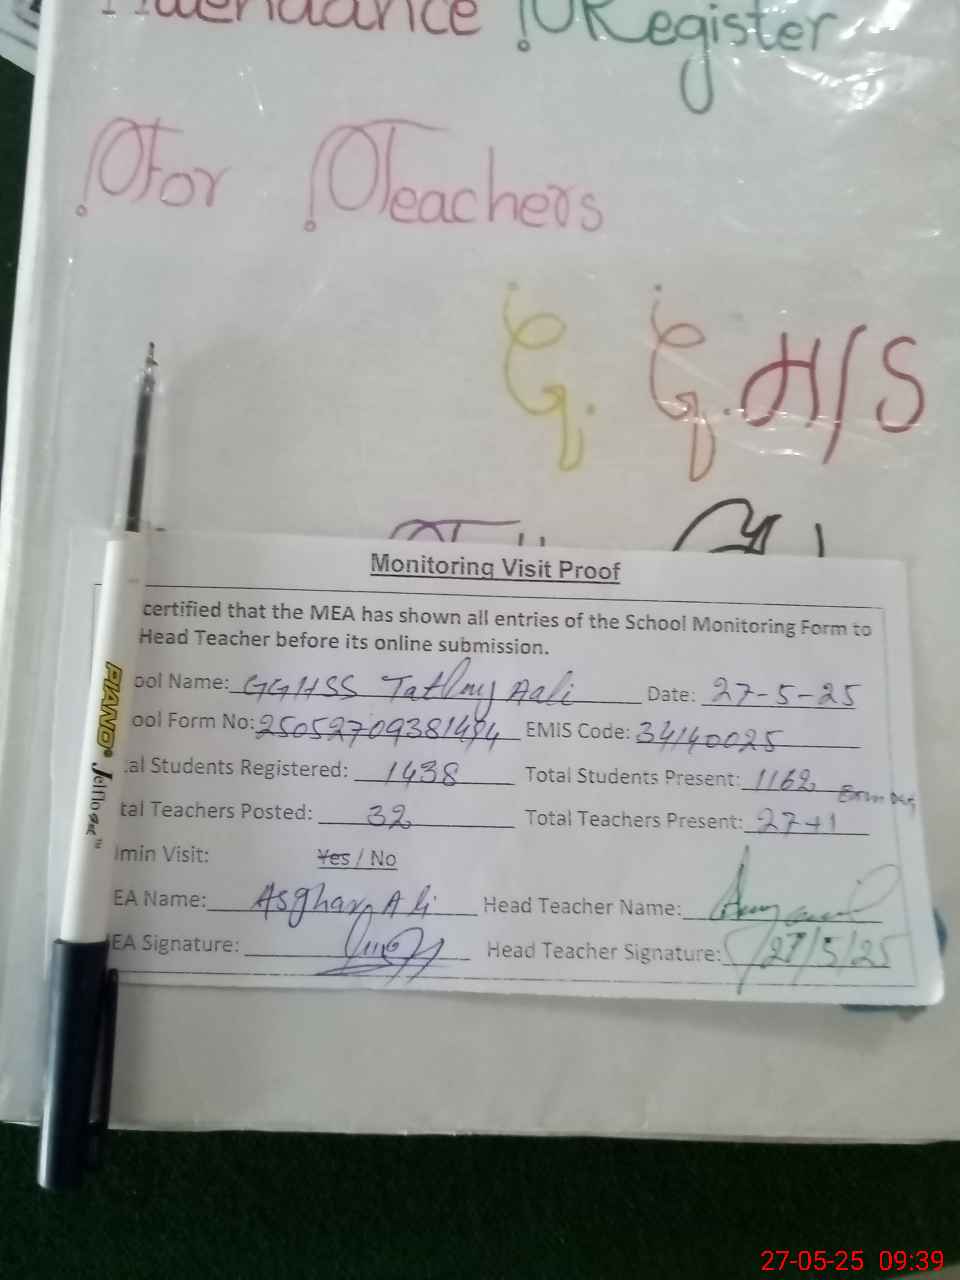 Attendance Register
For Teachers
G. G. H/S
Monitoring Visit Proof
certified that the MEA has shown all entries of the School Monitoring Form to
Head Teacher before its online submission.
ool Name: GGHSS Tatlay Aali Date: 27-5-25
ool Form No: 25052709381494 EMIS Code: 34140025
al Students Registered: 1438 Total Students Present: 1162
tal Teachers Posted: 32 Total Teachers Present: 27+1
lmin Visit: Yes / No
EA Name: Asghar Ali Head Teacher Name:
EA Signature: Head Teacher Signature: 27/5/25
PIANO Jelflo
27-05-25 09:39